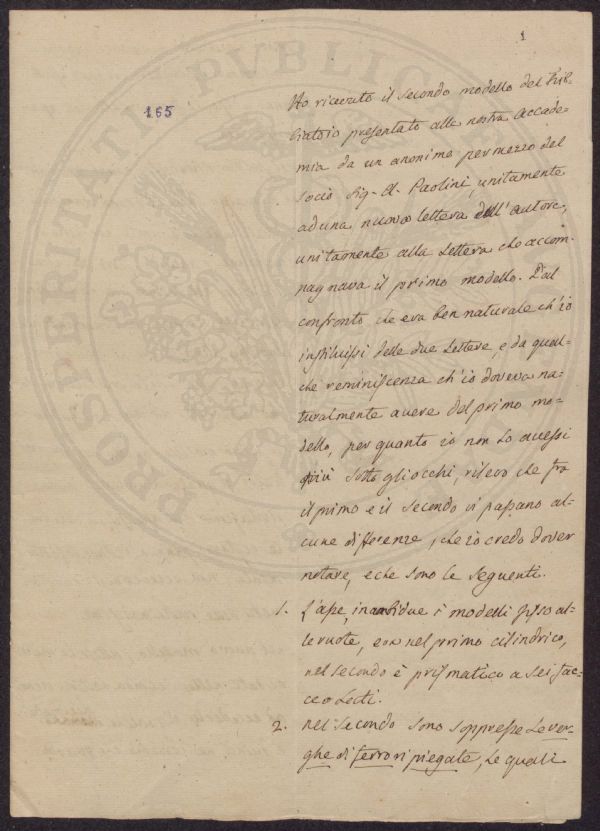 1
165
Ho ricevuto il secondo modello del Treb-
biatoio presentato alla nostra Accade-
mia da un anonimo per mezzo del
socio Sig. A. Paolini, unitamente
ad una nuova lettera dell'autore,
unitamente alla lettera che accom-
pagnava il primo modello. Dal
confronto che era ben naturale ch'io
instituissi delle due Lettere, e da qual-
che reminiscenza ch'io doveva na-
turalmente avere del primo mo-
dello, per quanto io non lo avessi
più sotto gli occhi, rilevo che fra
il primo e il secondo vi passano al-
cune differenze, che io credo dover
notare, e che sono le seguenti.
1. L'asse, in ambidue i modelli fisso al-
le ruote, era nel primo cilindrico,
nel secondo è prismatico a sei fac-
ce o Lati.
2. nel secondo sono soppresse le ver-
ghe di ferro ripiegate, le quali
PROSPERITATI PVBLICAE